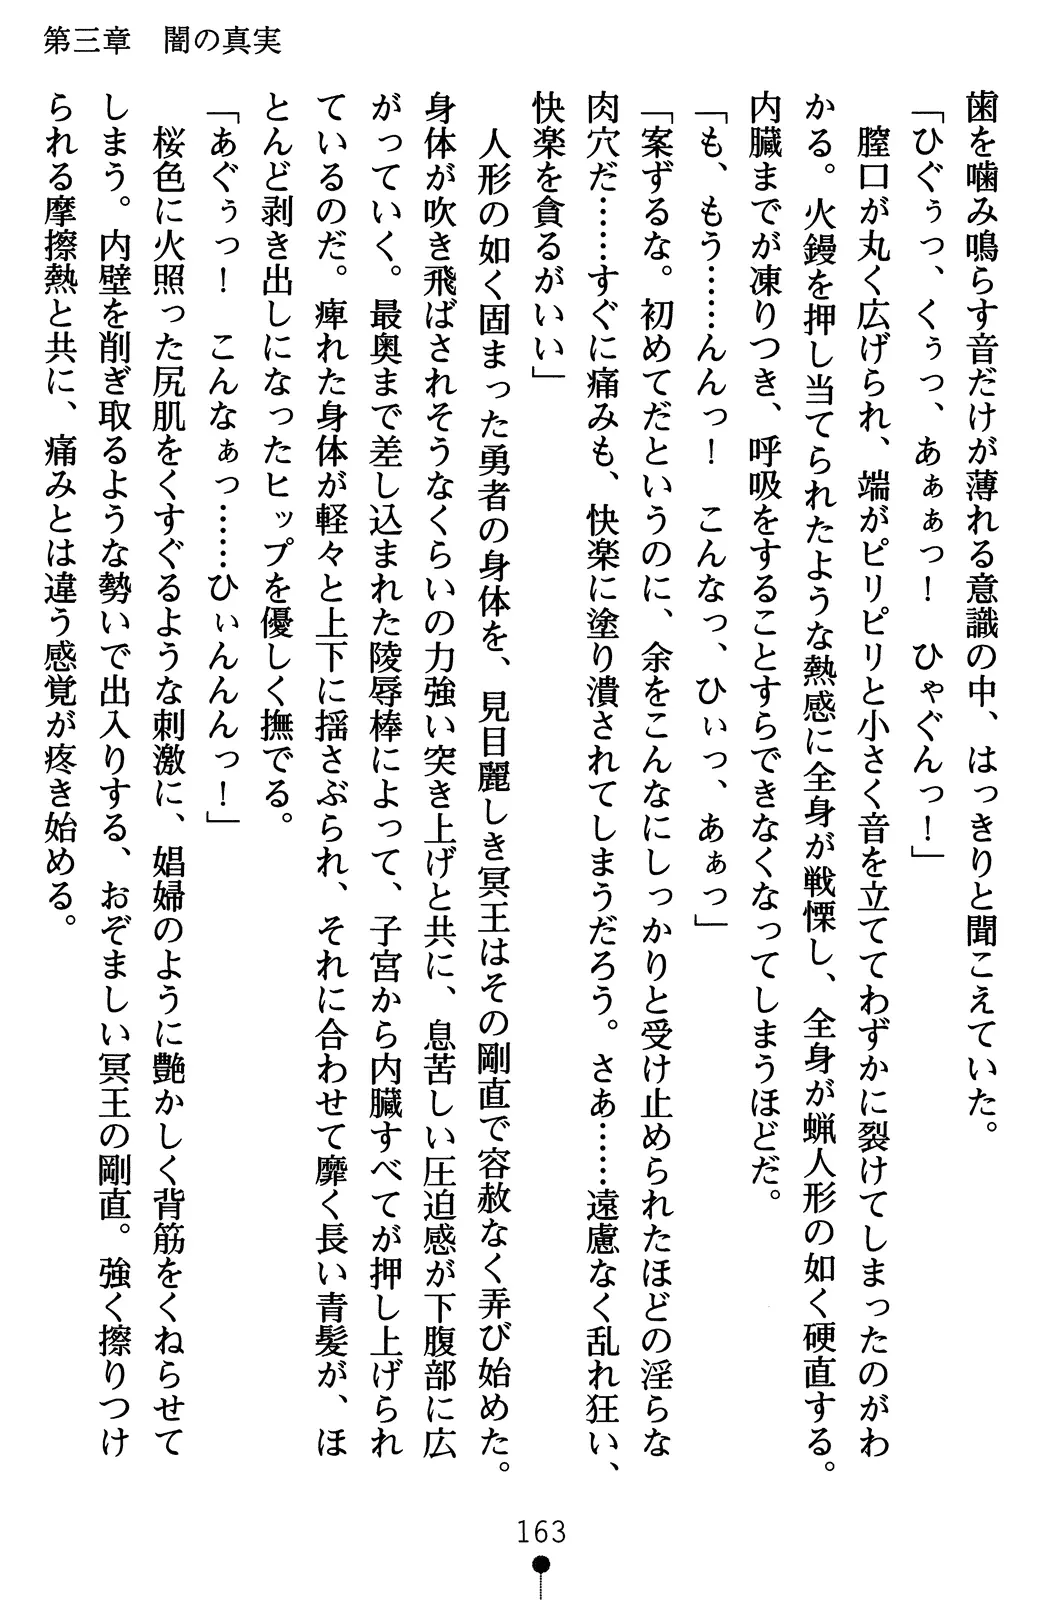 第三章　闇の真実
歯を噛み鳴らす音だけが薄れる意識の中、はっきりと聞こえていた。
「ひぐぅっ、くぅっ、あぁぁっ！　ひゃぐんっ！」
　膣口が丸く広げられ、端がピリピリと小さく音を立ててわずかに裂けてしまったのがわ
かる。火鏝を押し当てられたような熱感に全身が戦慄し、全身が蝋人形の如く硬直する。
内臓までが凍りつき、呼吸をすることすらできなくなってしまうほどだ。
「も、もう……んんっ！　こんなっ、ひぃっ、あぁっ」
「案ずるな。初めてだというのに、余をこんなにしっかりと受け止められたほどの淫らな
肉穴だ……すぐに痛みも、快楽に塗り潰されてしまうだろう。さあ……遠慮なく乱れ狂い、
快楽を貪るがいい」
　人形の如く固まった勇者の身体を、見目麗しき冥王はその剛直で容赦なく弄び始めた。
身体が吹き飛ばされそうなくらいの力強い突き上げと共に、息苦しい圧迫感が下腹部に広
がっていく。最奥まで差し込まれた陵辱棒によって、子宮から内臓すべてが押し上げられ
ているのだ。痺れた身体が軽々と上下に揺さぶられ、それに合わせて靡く長い青髪が、ほ
とんど剥き出しになったヒップを優しく撫でる。
「あぐぅっ！　こんなぁっ……ひぃんんんっ！」
　桜色に火照った尻肌をくすぐるような刺激に、娼婦のように艶かしく背筋をくねらせて
しまう。内壁を削ぎ取るような勢いで出入りする、おぞましい冥王の剛直。強く擦りつけ
られる摩擦熱と共に、痛みとは違う感覚が疼き始める。
163